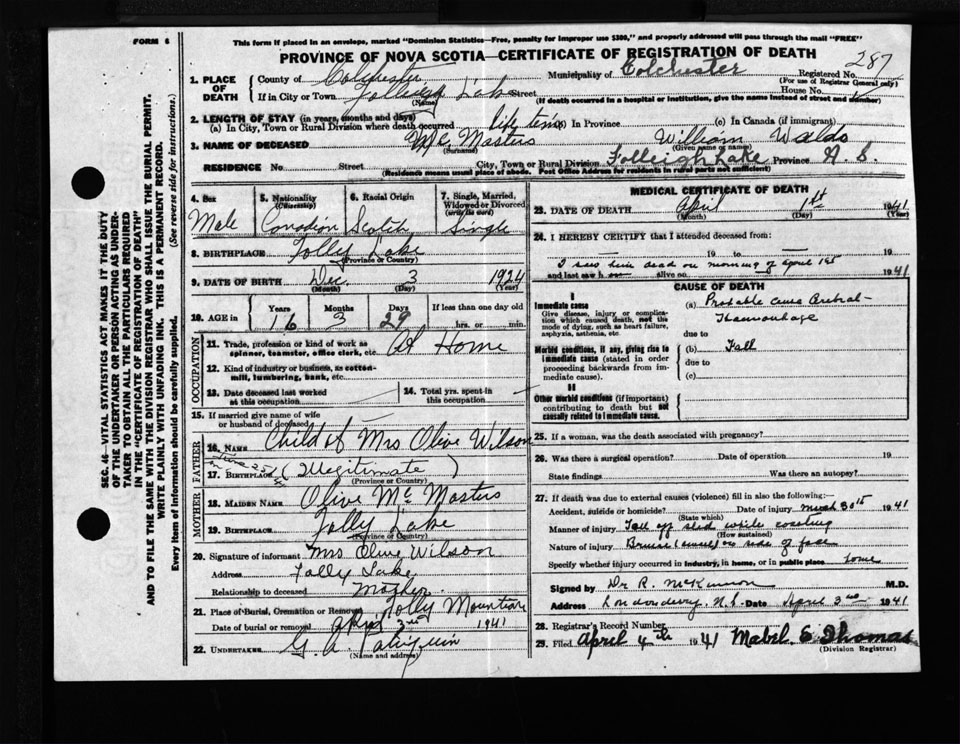 FORM 6
This form if placed in an envelope, marked "Dominion Statistics—Free, penalty for improper use $300," and properly addressed will pass through the mail "FREE"
PROVINCE OF NOVA SCOTIA—CERTIFICATE OF REGISTRATION OF DEATH
287
1. PLACE OF DEATH County of Colchester Municipality of Colchester Registered No.
(For use of Registrar General only)
If in City or Town Lake Street House No.
(Name) (If death occurred in a hospital or institution, give the name instead of street and number)
2. LENGTH OF STAY (in years, months and days)
(a) In City, Town or Rural Division where death occurred life time (b) In Province (c) In Canada (if immigrant)
3. NAME OF DECEASED Mc Masters William Waldo
(Surname) (Given name or names)
RESIDENCE No. Street City, Town or Rural Division Folleigh Lake Province N. S.
(Residence means usual place of abode. Post Office Address for residents in rural parts not sufficient)
4. Sex Male
5. Nationality (Citizenship) Canadian
6. Racial Origin Scotch
7. Single, Married, Widowed or Divorced (write the word) Single
8. BIRTHPLACE Folly Lake
(Province or Country)
9. DATE OF BIRTH Dec. 3 1924
(Month) (Day) (Year)
10. AGE in Years Months Days If less than one day old
16 3 29 hrs. or min.
OCCUPATION
11. Trade, profession or kind of work as spinner, teamster, office clerk, etc. At Home
12. Kind of industry or business, as cotton-mill, lumbering, bank, etc.
13. Date deceased last worked at this occupation
14. Total yrs. spent in this occupation
15. If married give name of wife or husband of deceased
FATHER
16. NAME Child of Mrs Olive Wilson
17. BIRTHPLACE (Illegitimate)
(Province or Country)
MOTHER
18. MAIDEN NAME Olive Mc Masters
19. BIRTHPLACE Folly Lake
(Province or Country)
20. Signature of informant Mrs Olive Wilson
Address Folly Lake
Relationship to deceased Mother
21. Place of Burial, Cremation or Removal Folly Mountain
Date of burial or removal April 3rd 1941
22. UNDERTAKER G. A.
(Name and address)
MEDICAL CERTIFICATE OF DEATH
23. DATE OF DEATH April 1st 1941
(Month) (Day) (Year)
24. I HEREBY CERTIFY that I attended deceased from:
19 to 19
I saw him dead on morning of April 1st
and last saw h alive on 1941
CAUSE OF DEATH
I
Immediate cause
Give disease, injury or complication which caused death, not the mode of dying, such as heart failure, asphyxia, asthenia, etc.
(a) Probable cause
due to
Morbid conditions, if any, giving rise to immediate cause (stated in order proceeding backwards from immediate cause).
(b) Fall
due to
(c)
II
Other morbid conditions (if important) contributing to death but not causally related to immediate cause.
25. If a woman, was the death associated with pregnancy?
26. Was there a surgical operation? Date of operation 19
State findings Was there an autopsy?
27. If death was due to external causes (violence) fill in also the following:—
Accident, suicide or homicide? Date of injury March 30th 1941
(State which)
Manner of injury Fall off sled while coasting
(How sustained)
Nature of injury Bruise on side of face
Specify whether injury occurred in industry, in home, or in public place home
Signed by Dr R. McKinnon M.D.
Address Londonderry, N.S. Date April 3rd 1941
28. Registrar's Record Number
29. Filed April 4th 1941 Mabel E Thomas
(Division Registrar)
SEC. 46—VITAL STATISTICS ACT MAKES IT THE DUTY
OF THE UNDERTAKER OR PERSON ACTING AS UNDER-
TAKER TO OBTAIN ALL THE PARTICULARS REQUIRED
IN THE "CERTIFICATE OF REGISTRATION OF DEATH"
AND TO FILE THE SAME WITH THE DIVISION REGISTRAR WHO SHALL ISSUE THE BURIAL PERMIT.
WRITE PLAINLY WITH UNFADING INK. THIS IS A PERMANENT RECORD.
Every item of information should be carefully supplied. (See reverse side for instructions.)